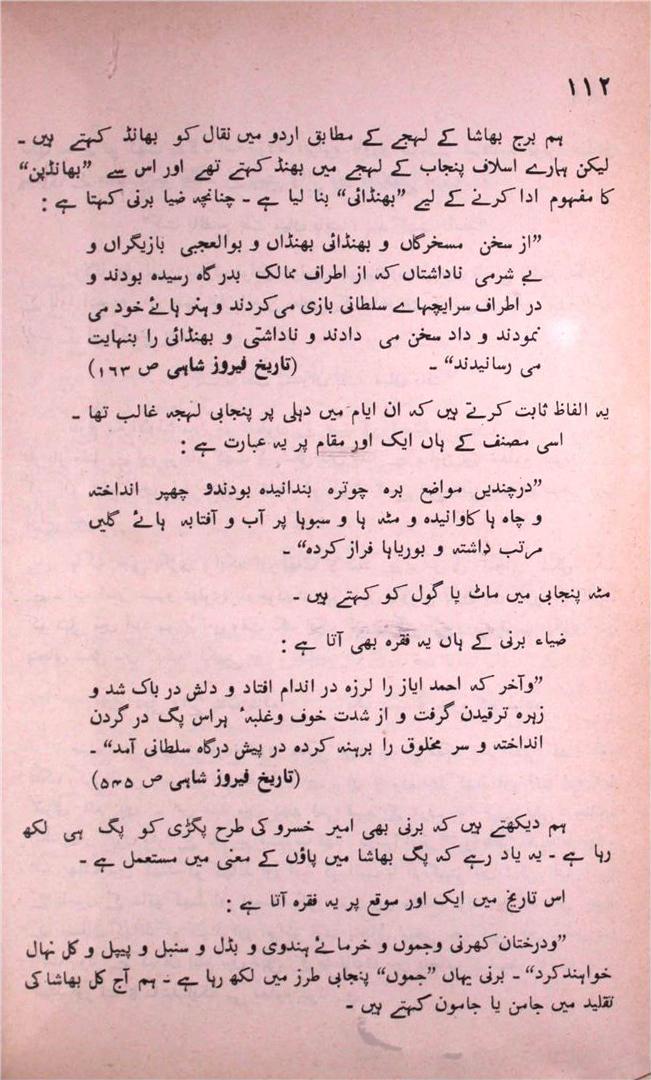 ۱۱۲
ہم برج بھاشا کے لہجے کے مطابق اردو میں نقال کو بھانڈ کہتے ہیں ۔
لیکن ہمارے اسلاف پنجاب کے لہجے میں بھنڈ کہتے تھے اور اس سے ”بھانڈپن“
کا مفہوم ادا کرنے کے لیے ”بھنڈائی“ بنا لیا ہے ۔ چنانچہ ضیا برنی کہتا ہے :
”از سخن مسخرگاں و بھنڈائی بھنڈاں و بوالعجبی بازیگراں و
بے شرمی ناداشتاں کہ از اطراف ممالک بدرگاہ رسیدہ بودند و
در اطراف سرایچہاے سلطانی بازی می کردند و ہنر ہائے خود می
نمودند و داد سخن می دادند و ناداشتی و بھنڈائی را بنہایت
می رسانیدند“ ۔ (تاریخ فیروز شاہی ص ۱۶۳)
یہ الفاظ ثابت کرتے ہیں کہ ان ایام میں دہلی پر پنجابی لہجہ غالب تھا ۔
اسی مصنف کے ہاں ایک اور مقام پر یہ عبارت ہے :
”درچندیں مواضع برہ چوترہ بندانیدہ بودندو چھپر انداختہ
و چاہ ہا کاوانیدہ و مٹہ ہا و سبوہا پر آب و آفتابہ ہائے گلیں
مرتب داشتہ و بوریاہا فراز کردہ“ ۔
مٹہ پنجابی میں ماٹ یا گول کو کہتے ہیں ۔
ضیاء برنی کے ہاں یہ فقرہ بھی آتا ہے :
”وآخر کہ احمد ایاز را لرزہ در اندام افتاد و دلش در باک شد و
زہرہ ترقیدن گرفت و از شدت خوف وغلبہٴ ہراس پگ در گردن
انداختہ و سر مخلوق را برہنہ کردہ در پیش درگاہ سلطانی آمد“ ۔
(تاریخ فیروز شاہی ص ۵۴۵)
ہم دیکھتے ہیں کہ برنی بھی امیر خسرو کی طرح پگڑی کو پگ ہی لکھ
رہا ہے ۔ یہ یاد رہے کہ پگ بھاشا میں پاؤں کے معنی میں مستعمل ہے ۔
اس تاریخ میں ایک اور موقع پر یہ فقرہ آتا ہے :
”ودرختان کھرنی وجموں و خرمائے ہندوی و بڈل و سنبل و پیپل و کل نہال
خواہندکرد“ ۔ برنی یہاں ”جموں“ پنجابی طرز میں لکھ رہا ہے ۔ ہم آج کل بھاشا کی
تقلید میں جامن یا جامون کہتے ہیں ۔